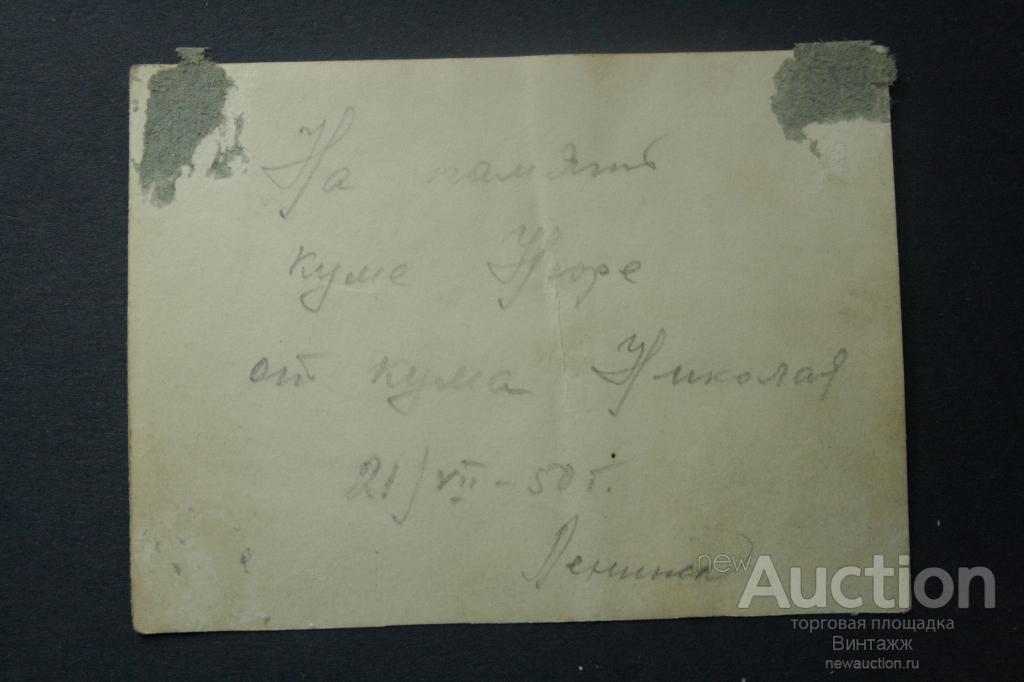 На память
куме Нюре
от кума Николая
21/VII-50 г.
Ленинск
newAuction
торговая площадка
Винтажж
newauction.ru